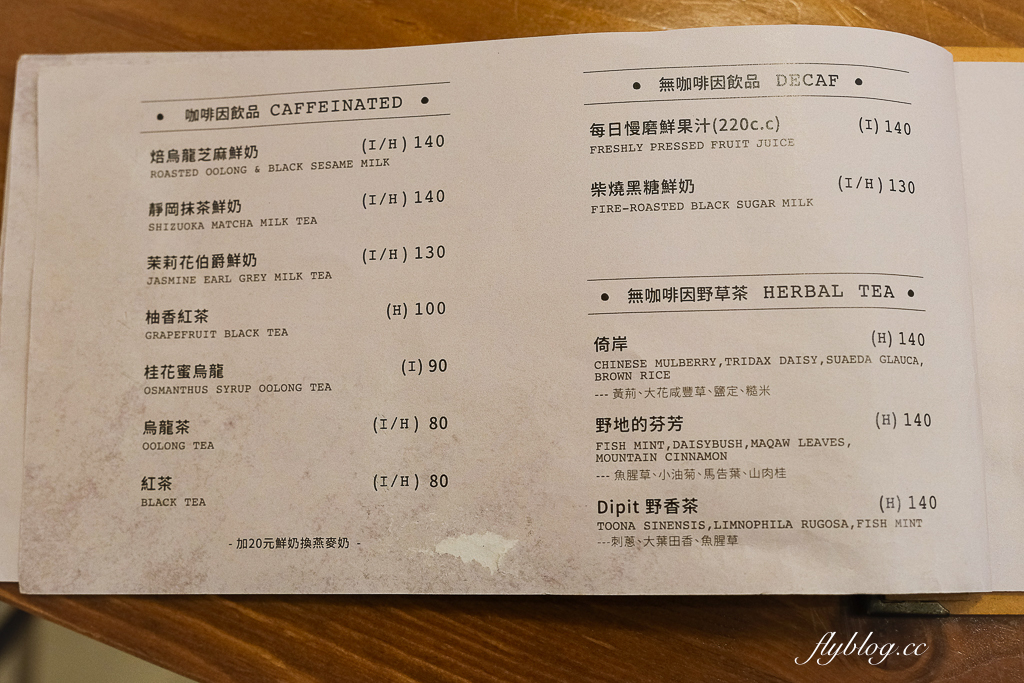 ● 咖啡因飲品 CAFFEINATED ●
焙烏龍芝麻鮮奶 (I/H) 140
ROASTED OOLONG & BLACK SESAME MILK
靜岡抹茶鮮奶 (I/H) 140
SHIZUOKA MATCHA MILK TEA
茉莉花伯爵鮮奶 (I/H) 130
JASMINE EARL GREY MILK TEA
柚香紅茶 (H) 100
GRAPEFRUIT BLACK TEA
桂花蜜烏龍 (I) 90
OSMANTHUS SYRUP OOLONG TEA
烏龍茶 (I/H) 80
OOLONG TEA
紅茶 (I/H) 80
BLACK TEA
- 加20元鮮奶換燕麥奶 -
● 無咖啡因飲品 DECAF ●
每日慢磨鮮果汁(220c.c) (I) 140
FRESHLY PRESSED FRUIT JUICE
柴燒黑糖鮮奶 (I/H) 130
FIRE-ROASTED BLACK SUGAR MILK
● 無咖啡因野草茶 HERBAL TEA ●
倚岸 (H) 140
CHINESE MULBERRY,TRIDAX DAISY,SUAEDA GLAUCA,
BROWN RICE
--- 黃荊、大花咸豐草、鹽定、糙米
野地的芬芳 (H) 140
FISH MINT,DAISYBUSH,MAQAW LEAVES,
MOUNTAIN CINNAMON
--- 魚腥草、小油菊、馬告葉、山肉桂
Dipit 野香茶 (H) 140
TOONA SINENSIS,LIMNOPHILA RUGOSA,FISH MINT
---刺蔥、大葉田香、魚腥草
flyblog.cc